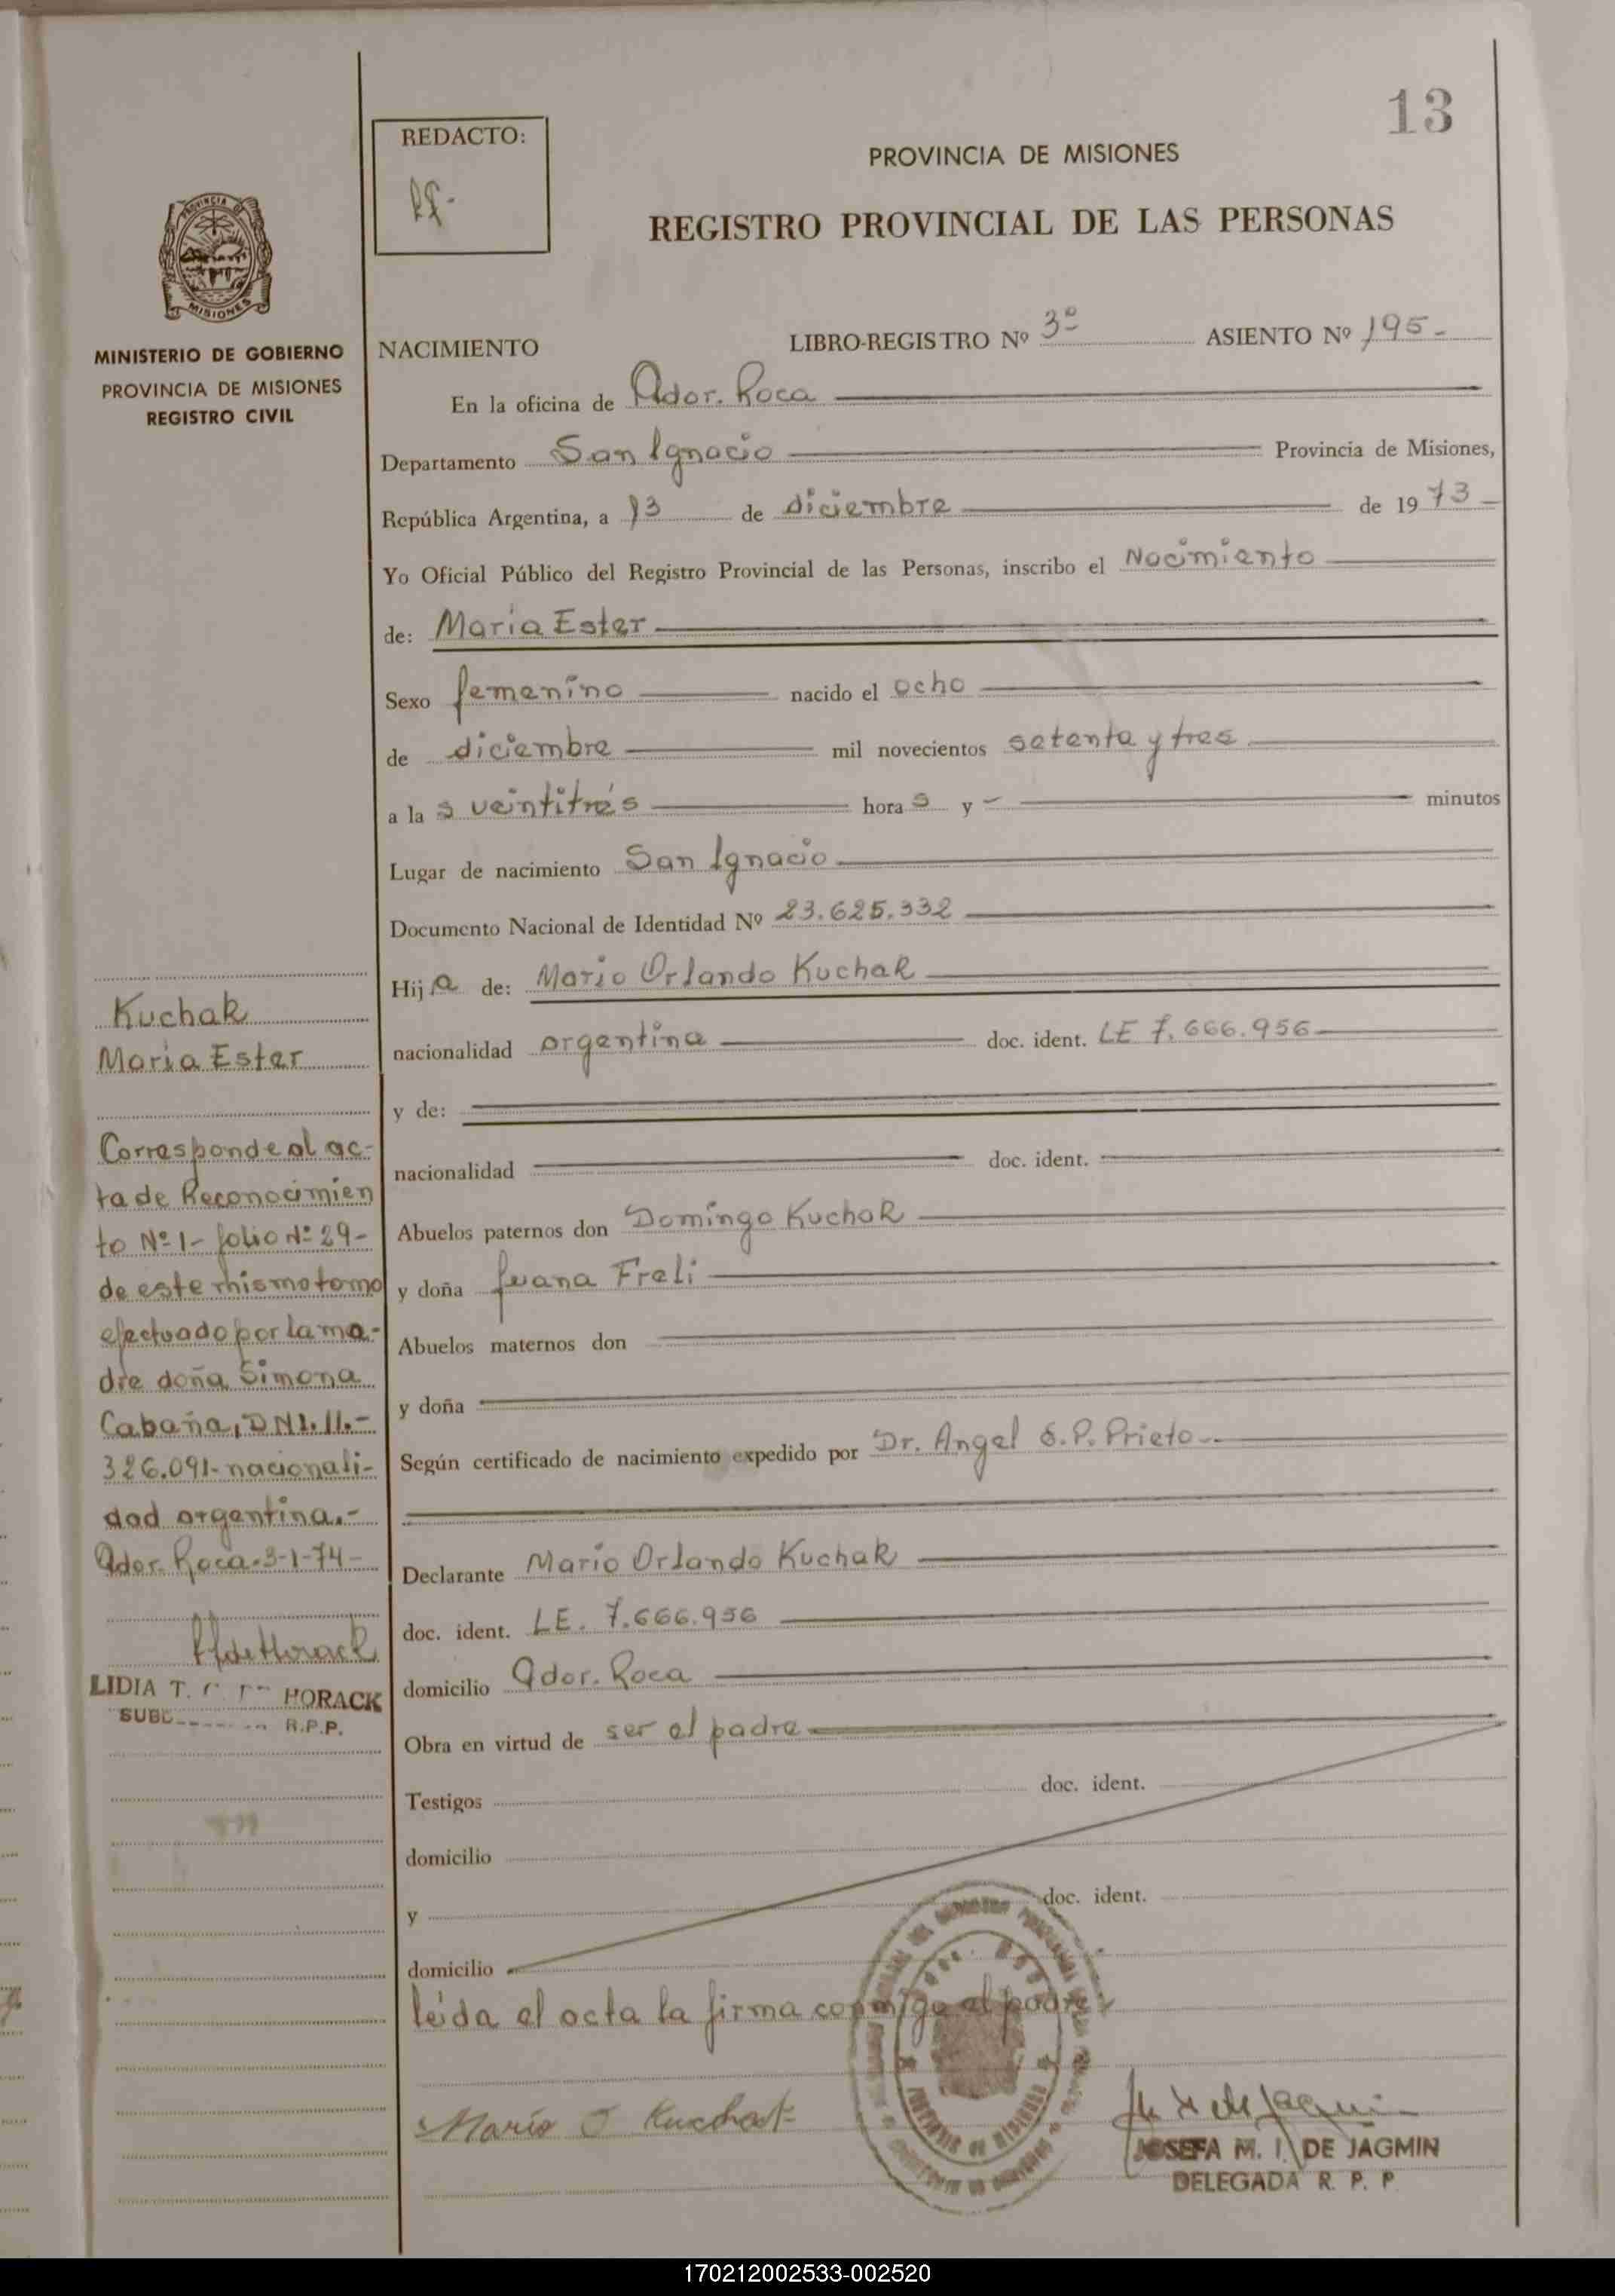 13
REDACTO:
PROVINCIA DE MISIONES
REGISTRO PROVINCIAL DE LAS PERSONAS
PROVINCIA DE
MISIONES
MINISTERIO DE GOBIERNO
PROVINCIA DE MISIONES
REGISTRO CIVIL
NACIMIENTO LIBRO-REGISTRO Nº 3º ASIENTO Nº 195-
En la oficina de Ador. Roca
Departamento San Ignacio Provincia de Misiones,
República Argentina, a 13 de diciembre de 1973
Yo Oficial Público del Registro Provincial de las Personas, inscribo el Nacimiento
de: María Ester
Sexo femenino nacido el ocho
de diciembre mil novecientos setenta y tres
a la s veintitrés hora s y - minutos
Lugar de nacimiento San Ignacio
Documento Nacional de Identidad Nº 23.625.332
Hij a de: Mario Orlando Kuchak
nacionalidad argentina doc. ident. LE 7.666.956
y de:
nacionalidad doc. ident.
Abuelos paternos don Domingo Kuchak
y doña Juana Freli
Abuelos maternos don
y doña
Según certificado de nacimiento expedido por Dr. Angel S.P. Prieto.-
Declarante Mario Orlando Kuchak
doc. ident. LE. 7.666.956
domicilio Ador. Roca
Obra en virtud de ser el padre
Testigos doc. ident.
domicilio
y doc. ident.
domicilio
leída el acta la firma conmigo el padre
Mario O Kuchak
JOSEFA M. I. DE JAGMIN
DELEGADA R. P. P.
Kuchak
María Ester
Corresponde al ac-
ta de Reconocimien
to Nº 1- folio Nº 29-
de este mismo tomo
efectuado por la ma-
dre doña Simona
Cabaña, DNI. 11.-
326.091- nacionali-
dad argentina.-
Ador. Roca. 3-1-74-
LIDIA T. HORACK
R.P.P.
170212002533-002520